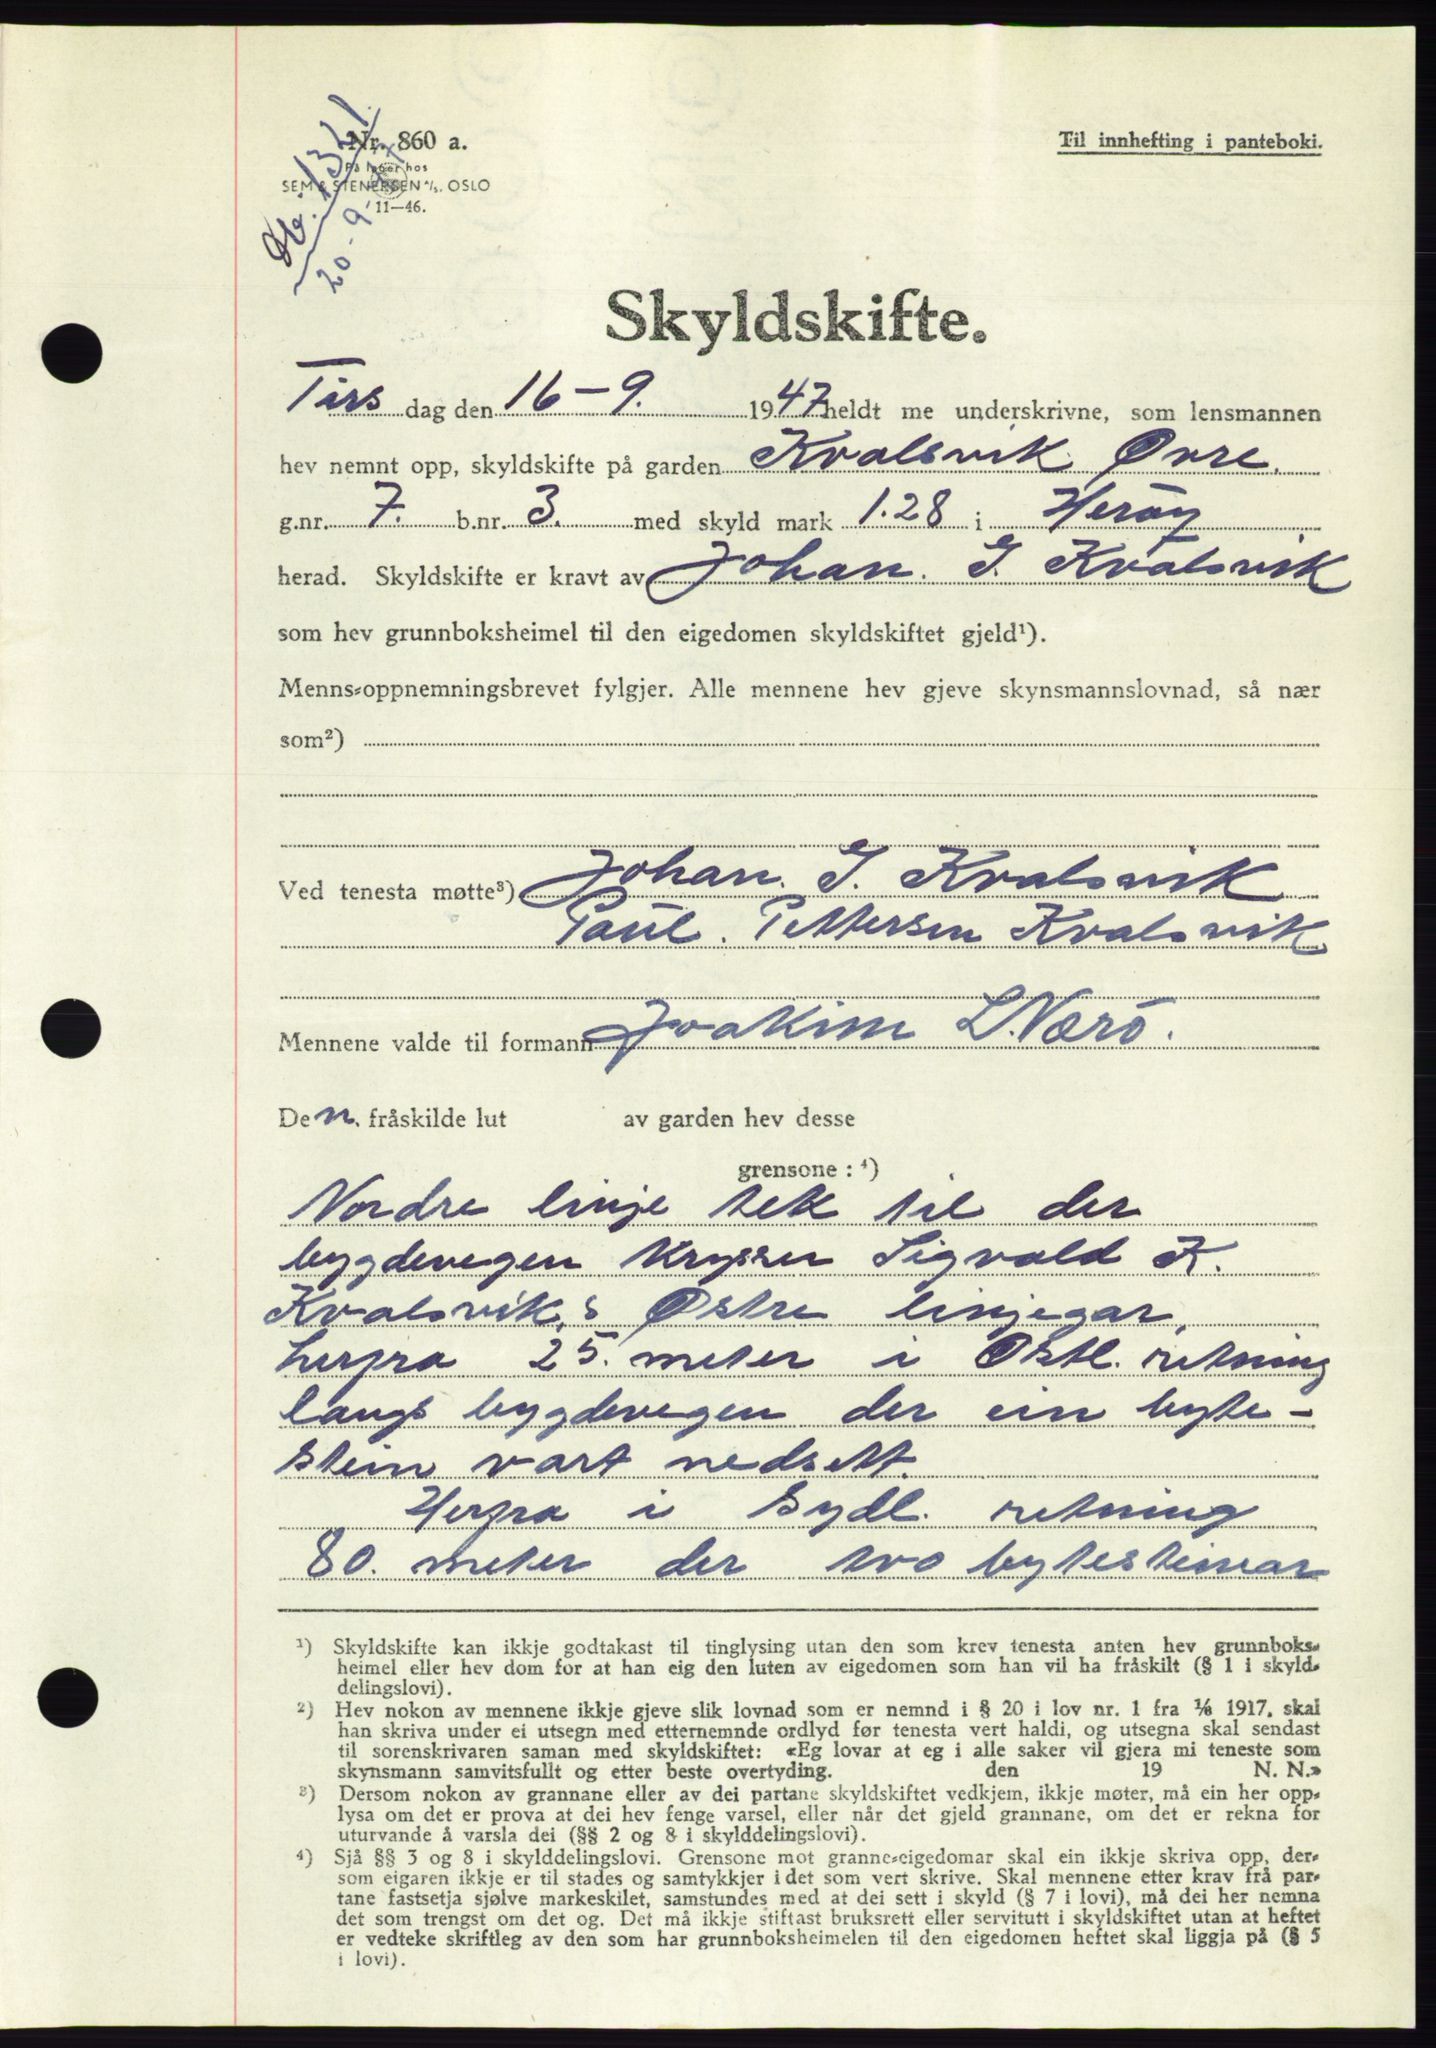 Nr. 860 a.
På lager hos
SEM & STENERSEN A/S, OSLO
11—46.
1321.
20-9-47
Til innhefting i panteboki.
Skyldskifte.
Tirsdag den 16-9. 1947 heldt me underskrivne, som lensmannen
hev nemnt opp, skyldskifte på garden Kvalsvik Øvre.
g.nr. 7. b.nr. 3. med skyld mark 1.28 i Herøy
herad. Skyldskifte er kravt av Johan. I. Kvalsvik
som hev grunnboksheimel til den eigedomen skyldskiftet gjeld¹).
Menns-oppnemningsbrevet fylgjer. Alle mennene hev gjeve skynsmannslovnad, så nær
som²)
Ved tenesta møtte³) Johan. I. Kvalsvik
Paul. Pettersen Kvalsvik
Mennene valde til formann Joakim L. Nærö.
Den. fråskilde lut av garden hev desse
grensone : ⁴)
Nordre linje tek til der
bygdevegen krysser Sigvald K.
Kvalsvik,s Østre linjegar,
herfra 25. meter i Østl. retning
langs bygdevegen der ein byte-
stein vart nedsett.
Herfra i sydl. retning
80. meter der tvo bytesteinar
¹) Skyldskifte kan ikkje godtakast til tinglysing utan den som krev tenesta anten hev grunnboks-
heimel eller hev dom for at han eig den luten av eigedomen som han vil ha fråskilt (§ 1 i skyld-
delingslovi).
²) Hev nokon av mennene ikkje gjeve slik lovnad som er nemnd i § 20 i lov nr. 1 fra 1/6 1917, skal
han skriva under ei utsegn med etternemnde ordlyd før tenesta vert haldi, og utsegna skal sendast
til sorenskrivaren saman med skyldskiftet: «Eg lovar at eg i alle saker vil gjera mi teneste som
skynsmann samvitsfullt og etter beste overtyding. den 19 N. N.»
³) Dersom nokon av grannane eller av dei partane skyldskiftet vedkjem, ikkje møter, må ein her opp-
lysa om det er prova at dei hev fenge varsel, eller når det gjeld grannane, om det er rekna for
uturvande å varsla dei (§§ 2 og 8 i skylddelingslovi).
⁴) Sjå §§ 3 og 8 i skylddelingslovi. Grensone mot granne-eigedomar skal ein ikkje skriva opp, der-
som eigaren ikkje er til stades og samtykkjer i det som vert skrive. Skal mennene etter krav frå par-
tane fastsetja sjølve markeskilet, samstundes med at dei sett i skyld (§ 7 i lovi), må dei her nemna
det som trengst om det og. Det må ikkje stiftast bruksrett eller servitutt i skyldskiftet utan at heftet
er vedteke skriftleg av den som har grunnboksheimelen til den eigedomen heftet skal liggja på (§ 5
i lovi).